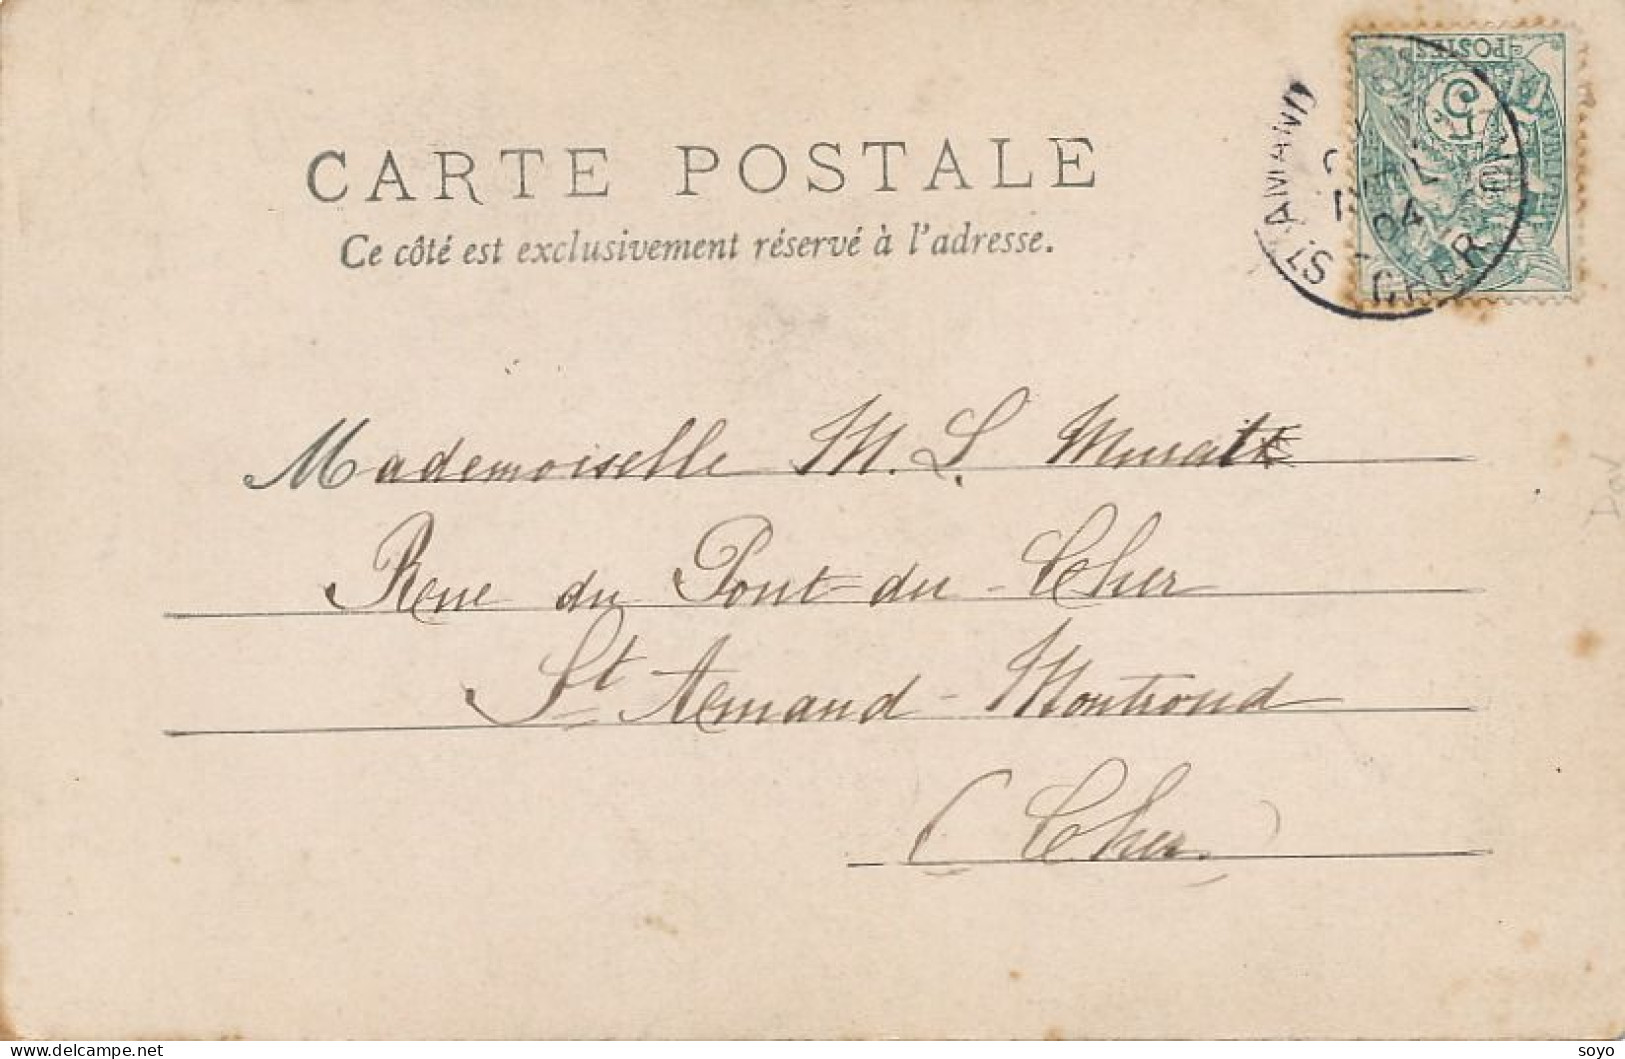 CARTE POSTALE
Ce côté est exclusivement réservé à l'adresse.
POSTES
5
ST AMAND
04
CHER
Mademoiselle M. L. Murat
Rue du Pont-du-Cher
St Amand-Montrond
(Cher)
delcampe.net
soyo